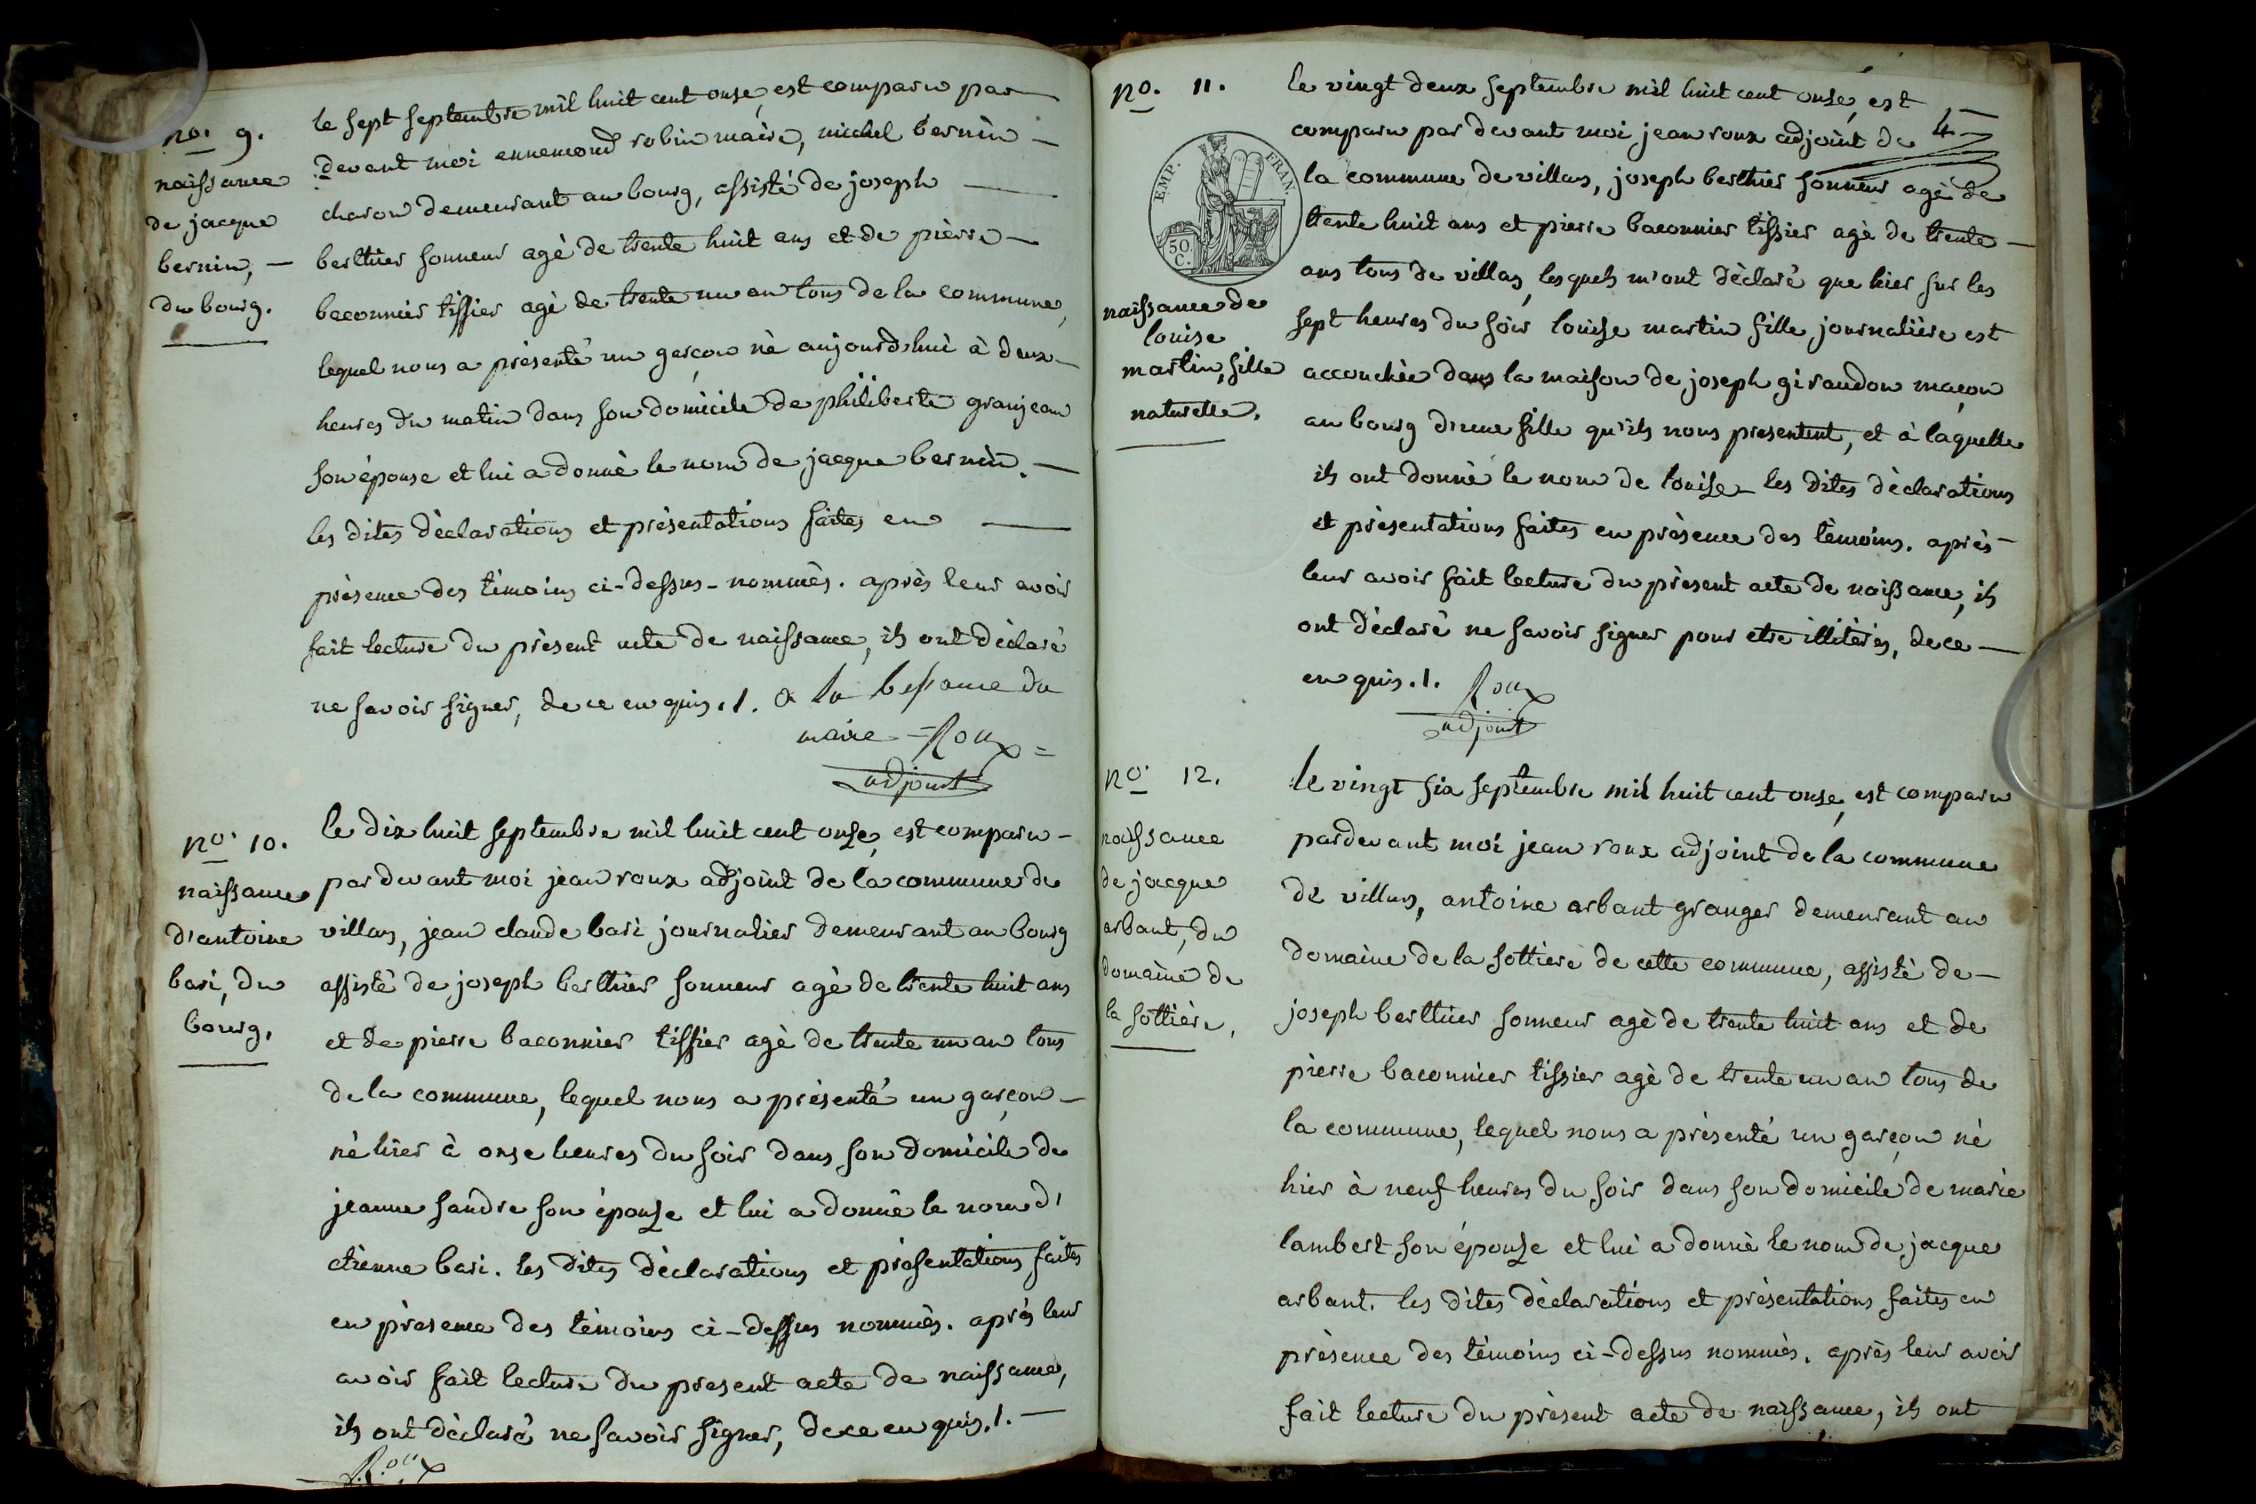 no. 9.
naissance
de jacque
bernin, —
du bourg.
le sept septembre mil huit cent onse, est comparu par
devant moi ennemond robin maire, michel bernin —
charon demeurant au bourg, assisté de joseph —
berthier sonneur agè de trente huit ans et de pierre —
baconnier tissier agè de trente un an tous de la commune,
lequel nous a prèsenté un garçon nè aujourd'hui à deux —
heures du matin dans son domicile de philiberte granjean
son épouse et lui a donnè le nom de jacque bernin. —
les dites dèclarations et prèsentations faites en —
prèsence des tèmoins ci-dessus-nommès. après leur avoir
fait lecture du prèsent acte de naissance, ils ont dèclaré
ne savoir signer, de ce enquis ./. a la
maire = Roux =
adjoint
no. 10.
naissance
d'antoine
bari, du
bourg.
le dix huit septembre mil huit cent onse, est comparu —
par devant moi jean roux adjoint de la commune de
villars, jean claude bari journalier demeurant au bourg
assistè de joseph berthier sonneur agè de trente huit ans
et de pierre baconnier tissier agè de trente un an tous
de la commune, lequel nous a prèsenté un garçon —
nè hier à onse heures du soir dans son domicile de
jeanne sandre son épouse et lui a donnè le nom d'
etienne bari. les dites dèclarations et prèsentations faites
en prèsence des tèmoins ci-dessus nommès. après leur
avoir fait lecture du present acte de naissance,
ils ont dèclaré ne savoir signer, de ce enquis ./. —
Roux
no. 11.
EMP. FRAN.
50 C.
naissance de
louise
martin, fille
naturelle.
4
le vingt deux septembre mil huit cent onse, est
comparu par devant moi jean roux adjoint de
la commune de villars, joseph berthier sonneur agè de
trente huit ans et pierre baconnier tissier agè de trente —
ans tous de villars, lesquels m'ont dèclaré que hier sur les
sept heures du soir louise martin fille journalière est
accouchèe dans la maison de joseph giraudon maçon
au bourg d'une fille qu'ils nous presentent, et à laquelle
ils ont donnè le nom de louise — les dites dèclarations
et prèsentations faites en prèsence des tèmoins. après —
leur avoir fait lecture du prèsent acte de naissance, ils
ont dèclaré ne savoir signer pour etre illitèrés, de ce —
enquis ./. Roux
adjoint
no. 12.
naissance
de jacque
arbant, du
domaine de
la sottière,
le vingt six septembre mil huit cent onse, est comparu
pardevant moi jean roux adjoint de la commune
de villars, antoine arbant granger demeurant au
domaine de la sottiere de cette commune, assistè de —
joseph berthier sonneur agè de trente huit ans et de
pierre baconnier tissier agè de trente un an tous de
la commune, lequel nous a prèsenté un garçon nè
hier à neuf heures du soir dans son domicile de marie
lambert son épouse et lui a donnè le nom de jacque
arbant. les dites dèclarations et prèsentations faites en
prèsence des tèmoins ci-dessus nommès. après leur avoir
fait lecture du prèsent acte de naissance, ils ont